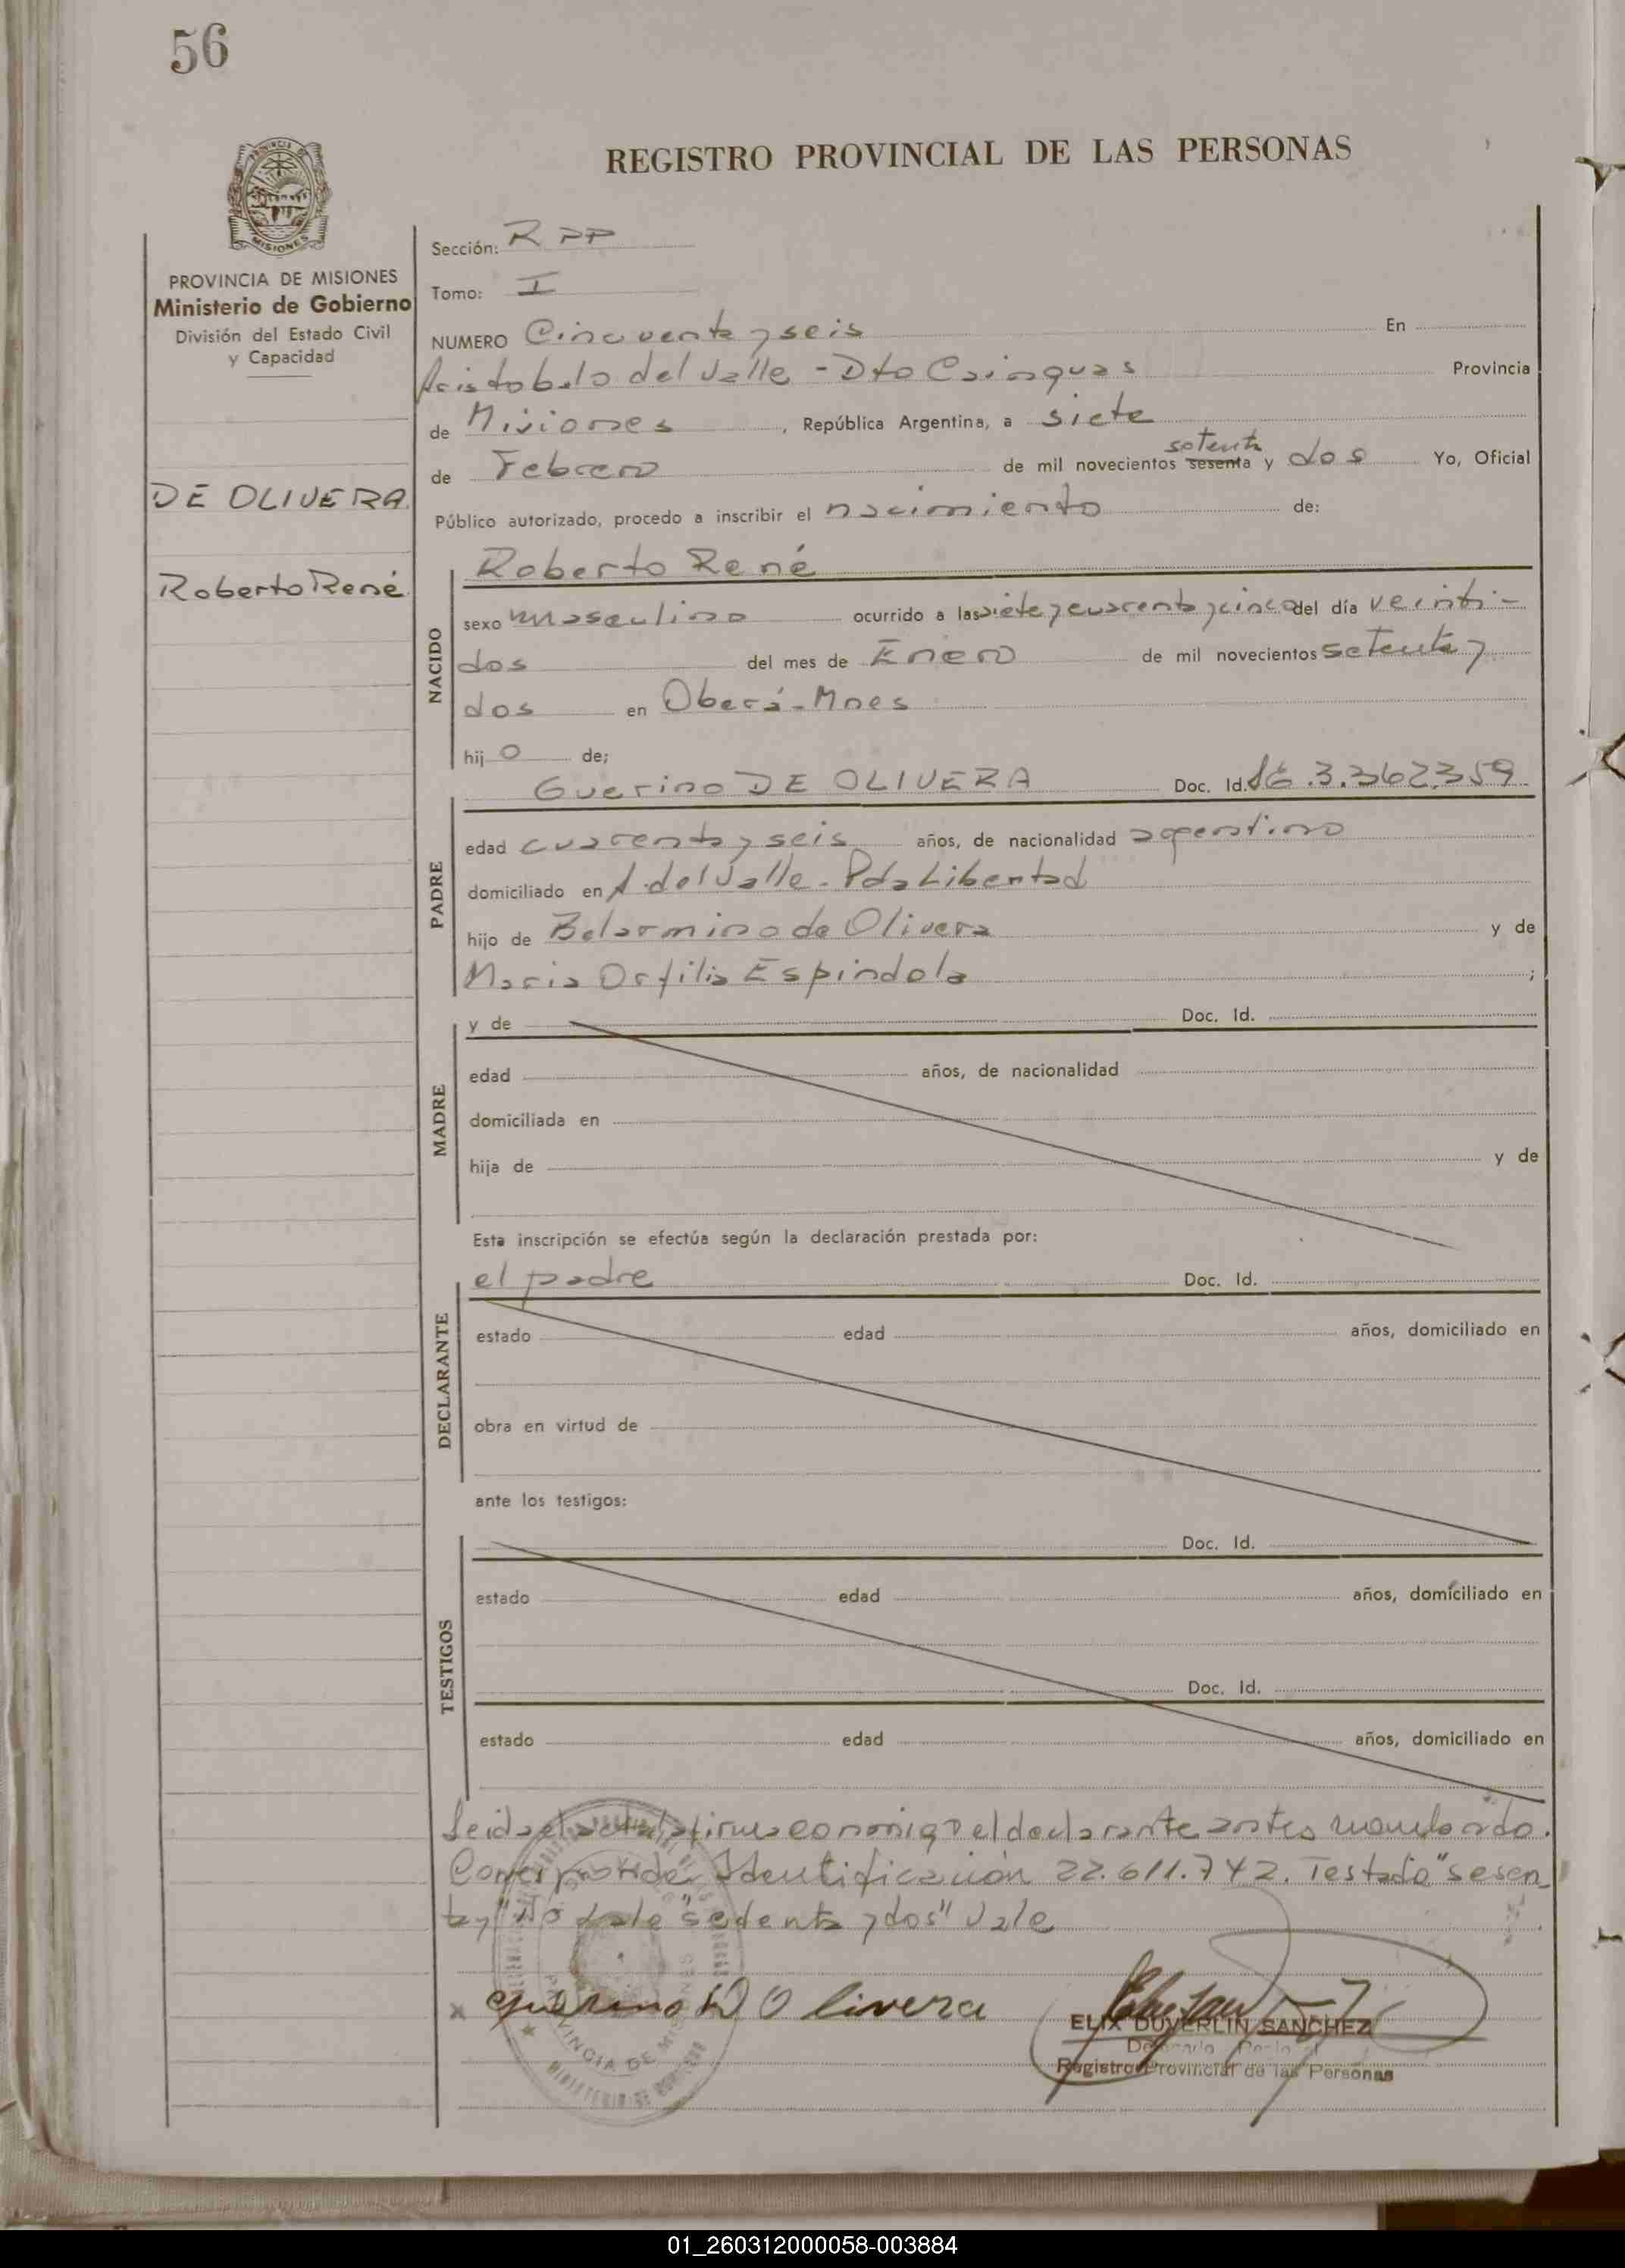 56
REGISTRO PROVINCIAL DE LAS PERSONAS
MISIONES
PROVINCIA DE MISIONES
Ministerio de Gobierno
División del Estado Civil
y Capacidad
DE OLIVERA
Roberto René
Sección: R PP
Tomo: I
NUMERO Cincuenta y seis En
Aristobulo del Valle - Dto Cainguas Provincia
de Misiones, República Argentina, a siete
setenta
de Febrero de mil novecientos sesenta y dos Yo, Oficial
Público autorizado, procedo a inscribir el nacimiento de:
NACIDO
Roberto René
sexo masculino ocurrido a las siete y cuarenta y cinco del día veinti-
dos del mes de Enero de mil novecientos setenta y
dos en Oberá - Mnes
hijo de;
PADRE
Guerino DE OLIVERA Doc. Id. 3.362.359
edad cuarenta y seis años, de nacionalidad argentino
domiciliado en A. del Valle - Pda Libertad
hijo de Belarmino de Olivera y de
Maria Orfilia Espindola ;
MADRE
y de Doc. Id.
edad años, de nacionalidad
domiciliada en
hija de y de
Esta inscripción se efectúa según la declaración prestada por:
DECLARANTE
el padre Doc. Id.
estado edad años, domiciliado en
obra en virtud de
ante los testigos:
TESTIGOS
Doc. Id.
estado edad años, domiciliado en
Doc. Id.
estado edad años, domiciliado en
Leida el acta la firma conmigo el declarante antes nombrado.
Identificación 22.611.742. Testado "sesen
ta y" No vale "setenta y dos" Vale
x Guerino D Olivera
PROVINCIA DE MISIONES
MINISTERIO DE GOBIERNO
ELIX DUVERLIN SANCHEZ
Registro Provincial de las Personas
01_260312000058-003884